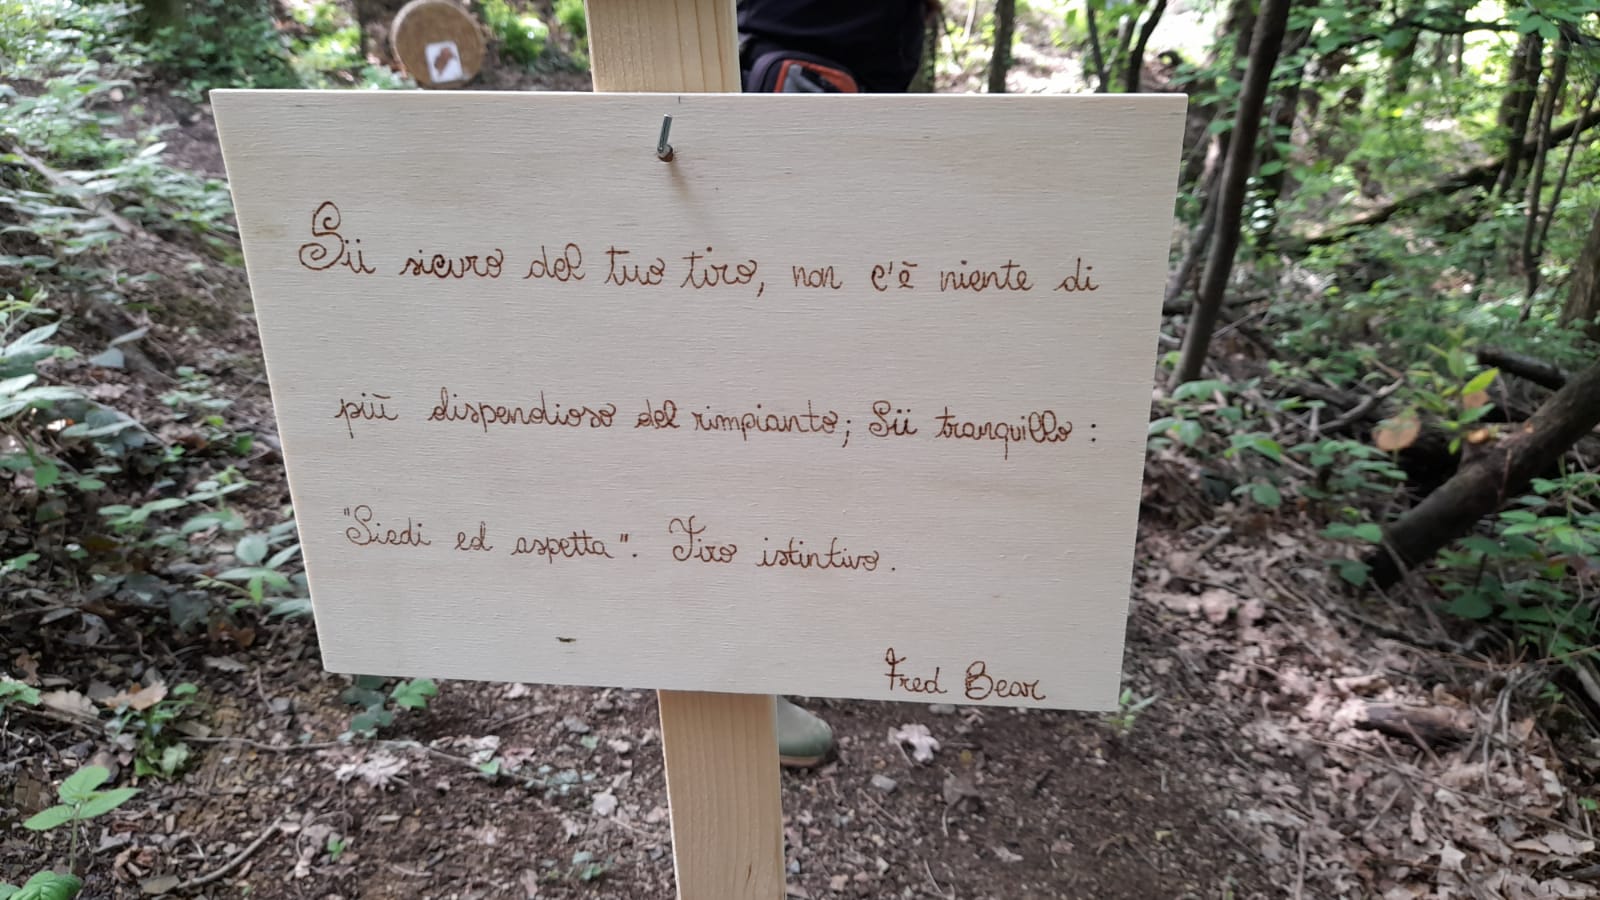 Sii sicuro del tuo tiro, non c'è niente di
più dispendioso del rimpianto; Sii tranquillo :
"Siedi ed aspetta". Tiro istintivo.
Fred Bear